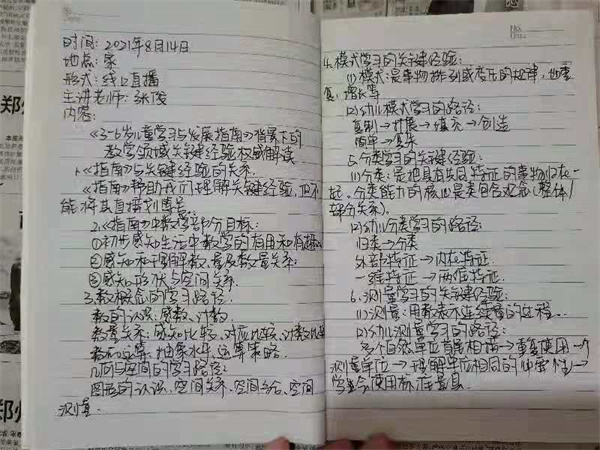 时间：2021年8月14日
地点：家
形式：线上直播
主讲老师：张俊
内容：
《3-6岁儿童学习与发展指南》背景下的
数学领域关键经验权威解读
1.《指南》与关键经验的关系
《指南》帮助我们理解关键经验，但不
能将其直接划等号
2.《指南》中数学部分目标：
①初步感知生活中数学的有用和有趣
②感知和理解数、量及数量关系
③感知形状与空间关系
3.数概念的学习路径
数的认识：感数、计数
数量关系：感知比较、对应比较、计数比较
数的运算：抽象水平、运算策略
几何与空间的学习路径：
图形的认识、空间关系、空间方位、空间
测量.
4.模式学习的关键经验：
(1)模式：是事物排列或变化的规律，如重
复、增长等
(2)幼儿模式学习的路径：
复制→扩展→填充→创造
简单→复杂
5.分类学习的关键经验：
(1)分类：是把具有共同特征的事物归在一
起，分类能力的核心是类包含观念(整体/
部分关系).
(2)幼儿分类学习的路径：
归类→分类
外部特征→内在特征
一维特征→两维特征
6.测量学习的关键经验：
(1)测量：用数表示连续量的过程.
(2)幼儿测量学习的路径：
多个自然单位首尾相接→重复使用一个
测量单位→理解单位相同的
学会使用标准量具
郑州
郑州